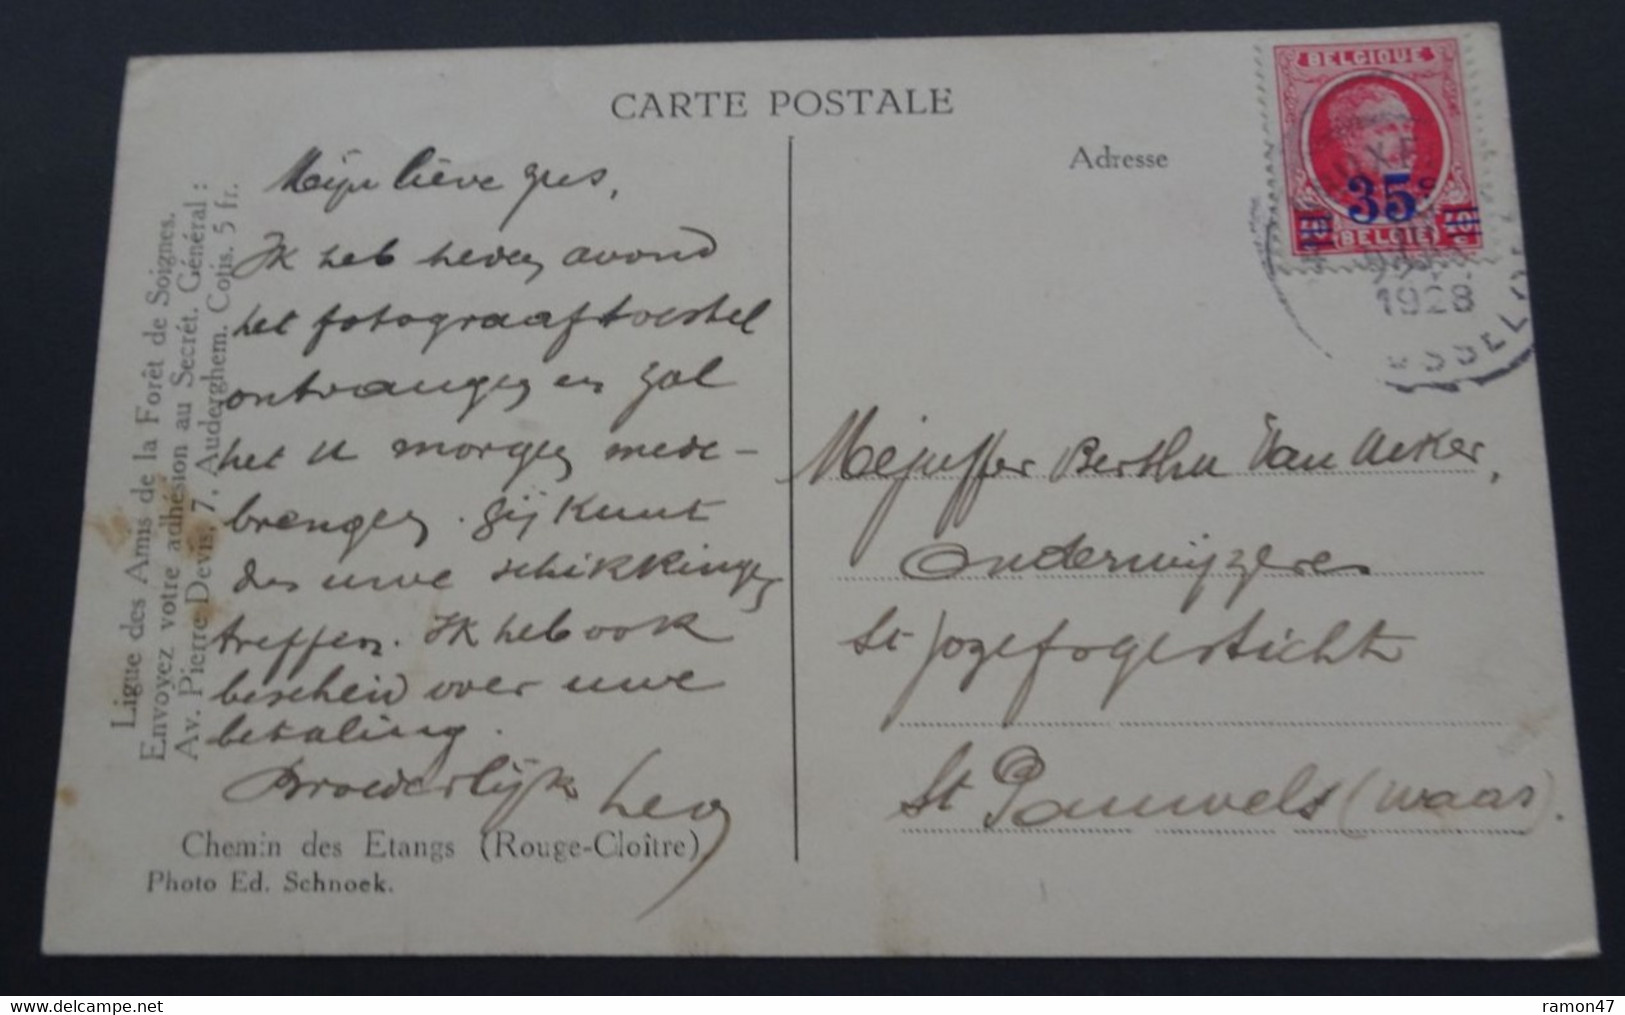 CARTE POSTALE
Ligue des Amis de la Forêt de Soignes.
Envoyez votre adhésion au Secrét. Général :
Av. Pierre Devis, 7, Auderghem. Cotis. 5 fr.
Mijn lieve zus,
Ik heb heden avond
het fotograaftoestel
ontvangen en zal
het u morgen mede-
brengen. Gij kunt
dus uwe schikkingen
treffen. Ik heb ook
bescheid over uwe
betaling.
Broederlijk
Leon
Chemin des Etangs (Rouge-Cloître)
Photo Ed. Schnoek.
Adresse
BELGIQUE
35c
40 BELGIË 40
1928
Mejuffer Bertha Van Acker,
Onderwijzeres
St Jozefsgesticht
St Pauwels (Waas).
ramon47